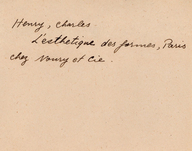 Henry, Charles.
L'esthetique des formes, Paris
chez Noury et Cie.